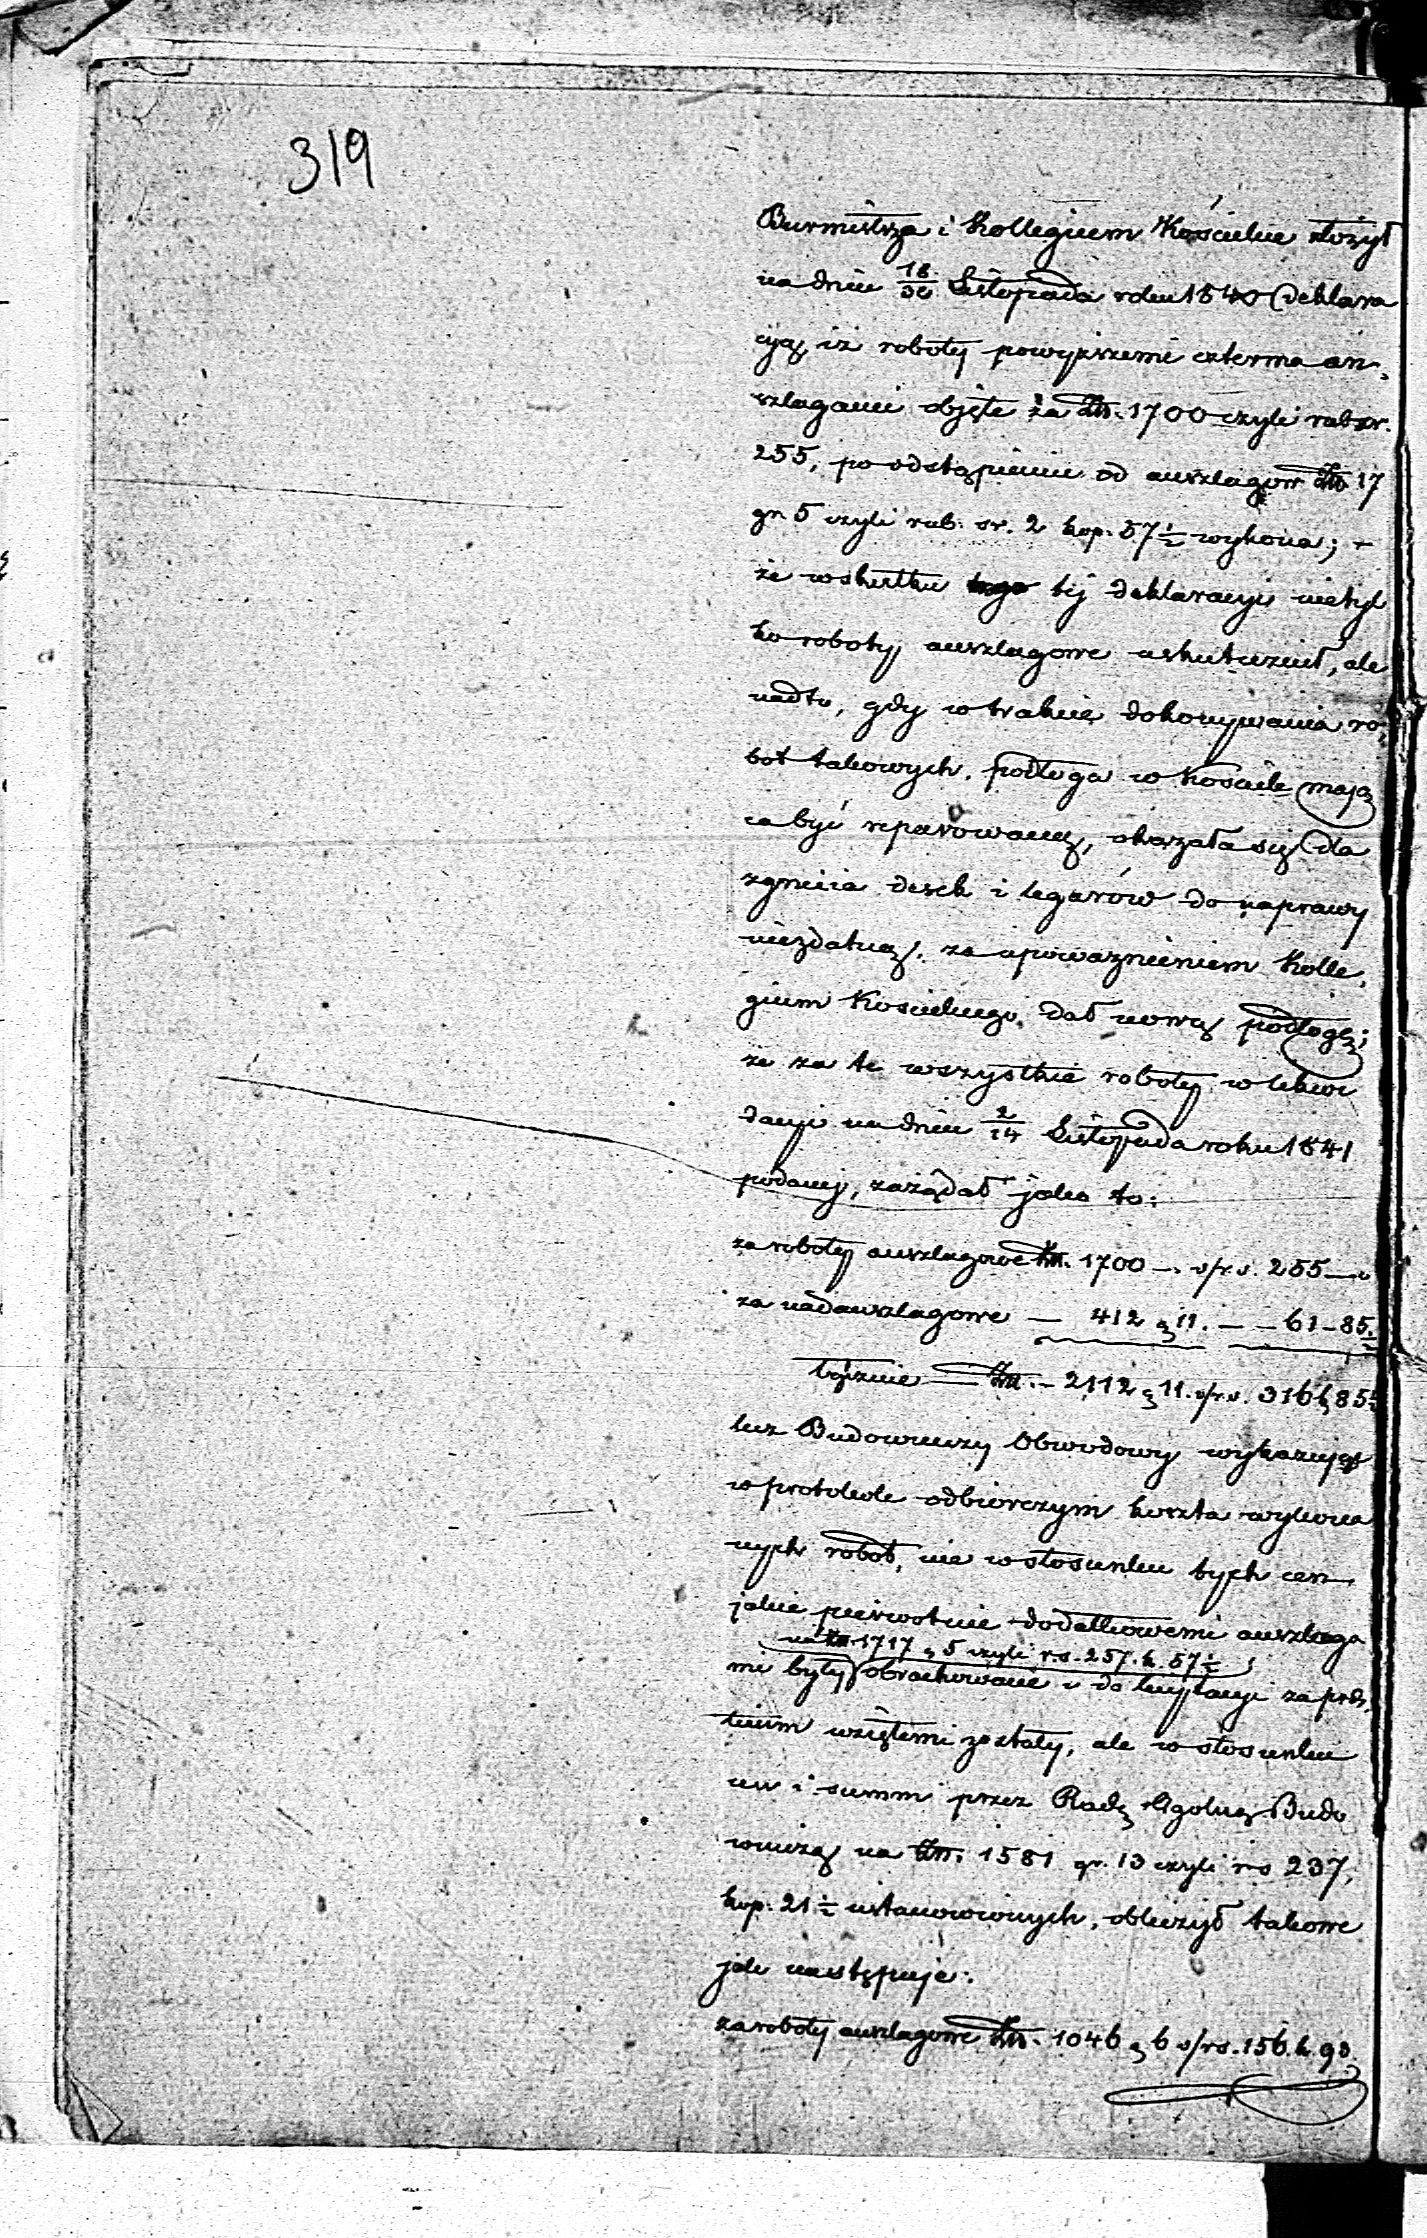 319
Burmistrza i Kollegium Kościelne złożył
na dniu 18/30 Listopada roku 1840 deklara
cyą, iż roboty powyższemi czterma an„
szlagami objęte za Złp. 1700 czyli rub sr.
255, po odstąpieniu od anszlagow Złp 17
gr. 5 czyli rub. sr. 2 kop. 57½ wykona; –
że wskutku tej deklaracyi nietyl
ko roboty anszlagowe uskutecznił, ale
nadto, gdy w trakcie dokonywania ro„
bot takowych, podłoga w Kościele mają
ca być reparowaną, okazała się dla
zgnicia desek i legarów do naprawy
niezdatną, za upoważnieniem Kolle„
gium Kościelnego, dał nową podłogę;
że za te wszystkie roboty w likwi
dacyi na dniu 2/14 Listopada roku 1841
podanej, zażądał jako to:
za roboty anszlagowe Złp. 1700 –. s/r.s. 255 –
za nadanszlagowe – 412 g 11. – – 61 – 85.
łącznie – Złp. – 2112 g 11. s/r.s. 316 k 85½
lecz Budowniczy Obwodowy wykazując
w protokole odbiorczym koszta wykona
nych robot, nie w stosunku tych cen,
jakie pierwotnie dodatkowemi anszlaga
na Złp. 1717 g 5 czyli r.s. 257. k. 57½
mi były obrachowane i do licytacyi za pre„
tium wziętemi zostały, ale w stosunku
cen i summ przez Radę Ogolną Budo
wniczą na Złp. 1581 gr. 13 czyli rs 237,
kop. 21½ ustanowionych, obliczył takowe
jak następuje:
za roboty anszlagowe Złp. 1046 g 6 s/rs. 156. k. 93